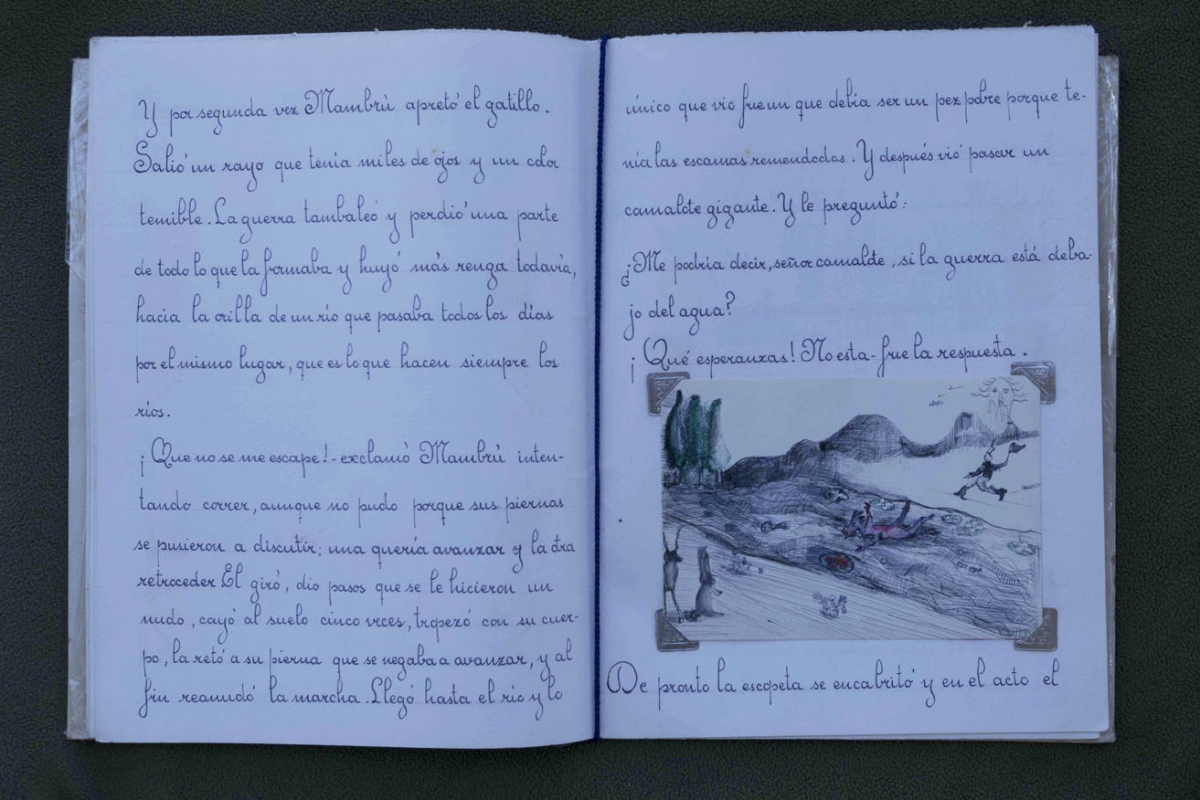 Y por segunda vez Mambrú apretó el gatillo.
Salió un rayo que tenia miles de ojos y un color
temible. La guerra tambaleó y perdió una parte
de todo lo que la formaba y huyó más renga todavía,
hacia la orilla de un río que pasaba todos los días
por el mismo lugar, que es lo que hacen siempre los
ríos.
¡Que no se me escape!- exclamó Mambrú inten-
tando correr, aunque no pudo porque sus piernas
se pusieron a discutir; una quería avanzar y la otra
retroceder. El giró, dio pasos que se le hicieron un
nudo, cayó al suelo cinco veces, tropezó con su cuer-
po, la retó a su pierna que se negaba a avanzar, y al
fin reanudó la marcha. Llegó hasta el río y lo
único que vio fue un que debía ser un pez pobre porque te-
nía las escamas remendadas. Y después vió pasar un
camalote gigante. Y le preguntó:
¿Me podría decir, señor camalote, si la guerra está deba-
jo del agua?
¡Qué esperanzas! No esta- fue la respuesta.
De pronto la escopeta se encabritó y en el acto el